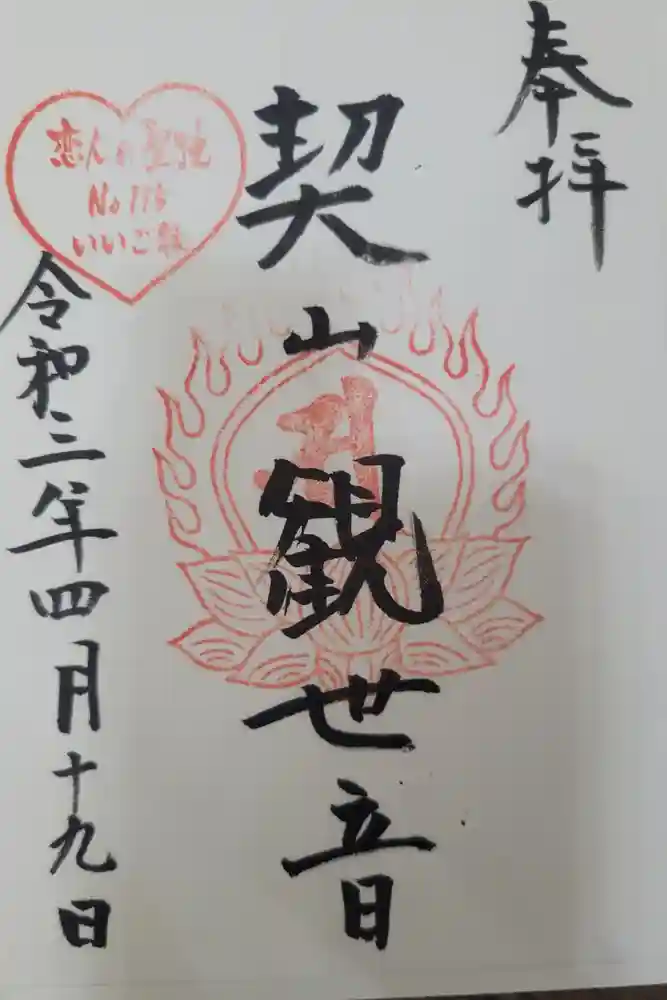 奉拝
契山観世音
令和三年四月十九日
恋人の聖地
No 116
いいご縁